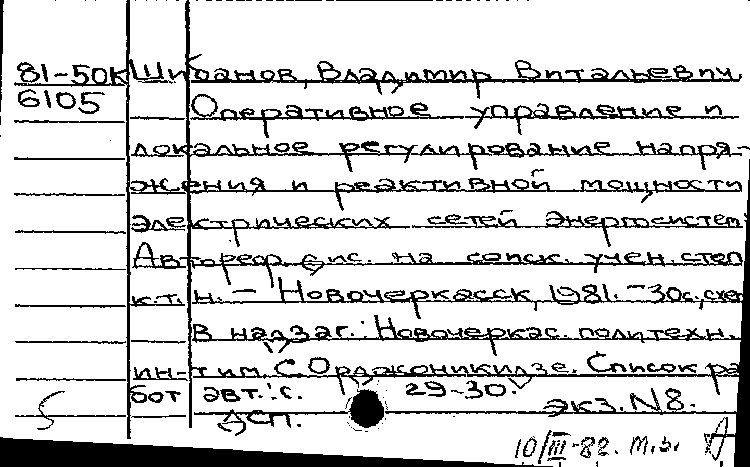 81-50к Шибанов, Владимир Витальевич.
6105 Оперативное управление и
локальное регулирование напря-
жения и реактивной мощности
электрических сетей энергосистем
Автореф. дис. на соиск. учен. степ
к.т.н. - Новочеркасск, 1981. - 30с., схем
В надзаг.: Новочеркас. политехн.
ин-т им. С. Орджоникидзе. Список ра
бот авт.: с. 29-30.
ДСП. экз. N8.
10/III-82. М.